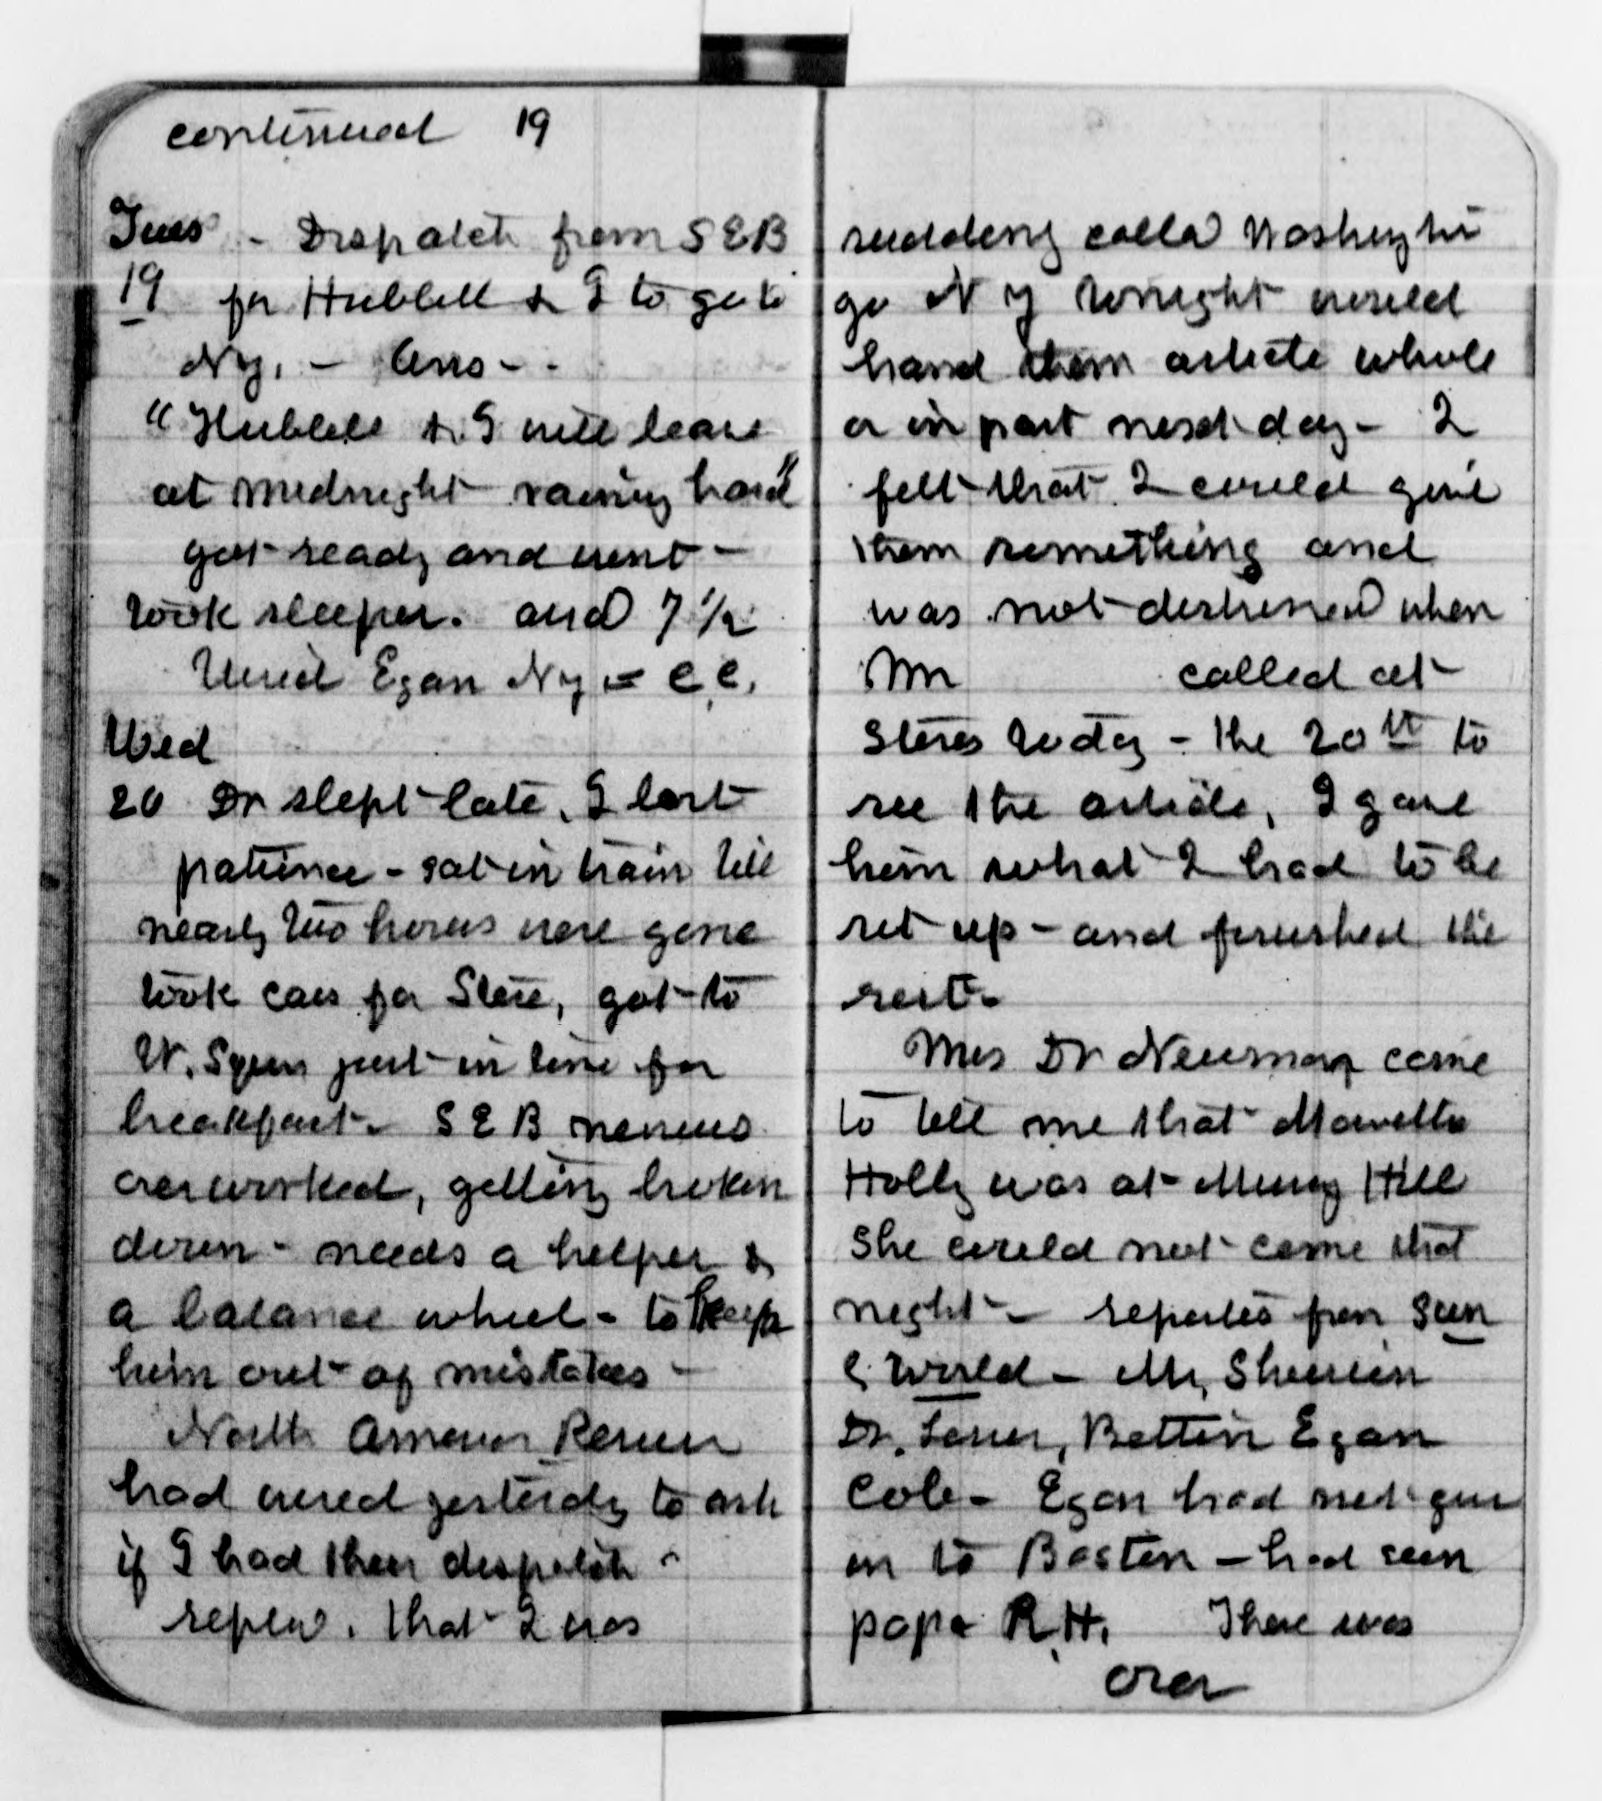 continued 19
Tues - Dispatch from S E B
19 for Hubbell & I to go to
Ny. - Ans - .
"Hubbell & I will leave
at midnight raining hard"
got ready and went -
took sleeper. and 7 1/2
Wired Egan Ny = C.C.
Wed
20 Dr slept late, I lost
patience - sat in train till
nearly two hours were gone
took cars for Store, got to
W. Sqem just in time for
breakfast. S E B nervous
overworked, getting broken
down - needs a helper &
a balance wheel - to keep
him out of mistakes -
North American Review
had wired yesterday to ask
if I had their despatch -
replied. that I was
suddenly called Washington
go N Y tonight would
hand them article whole
or in part next day - I
felt that I could give
them something and
was not disturbed when
Mr called at
Stores today - the 20th to
see the article, I gave
him what I had to be
set up - and finished the
rest.
Mrs Dr Newman came
to tell me that Marietta
Holly was at Murray Hill
She could not come that
night - reporters from Sun
& World - Mr, Sherwin
Dr. Lesser, Bettin Egan
Cole - Egan had not gone
on to Boston - had seen
papa R.H. There was
over